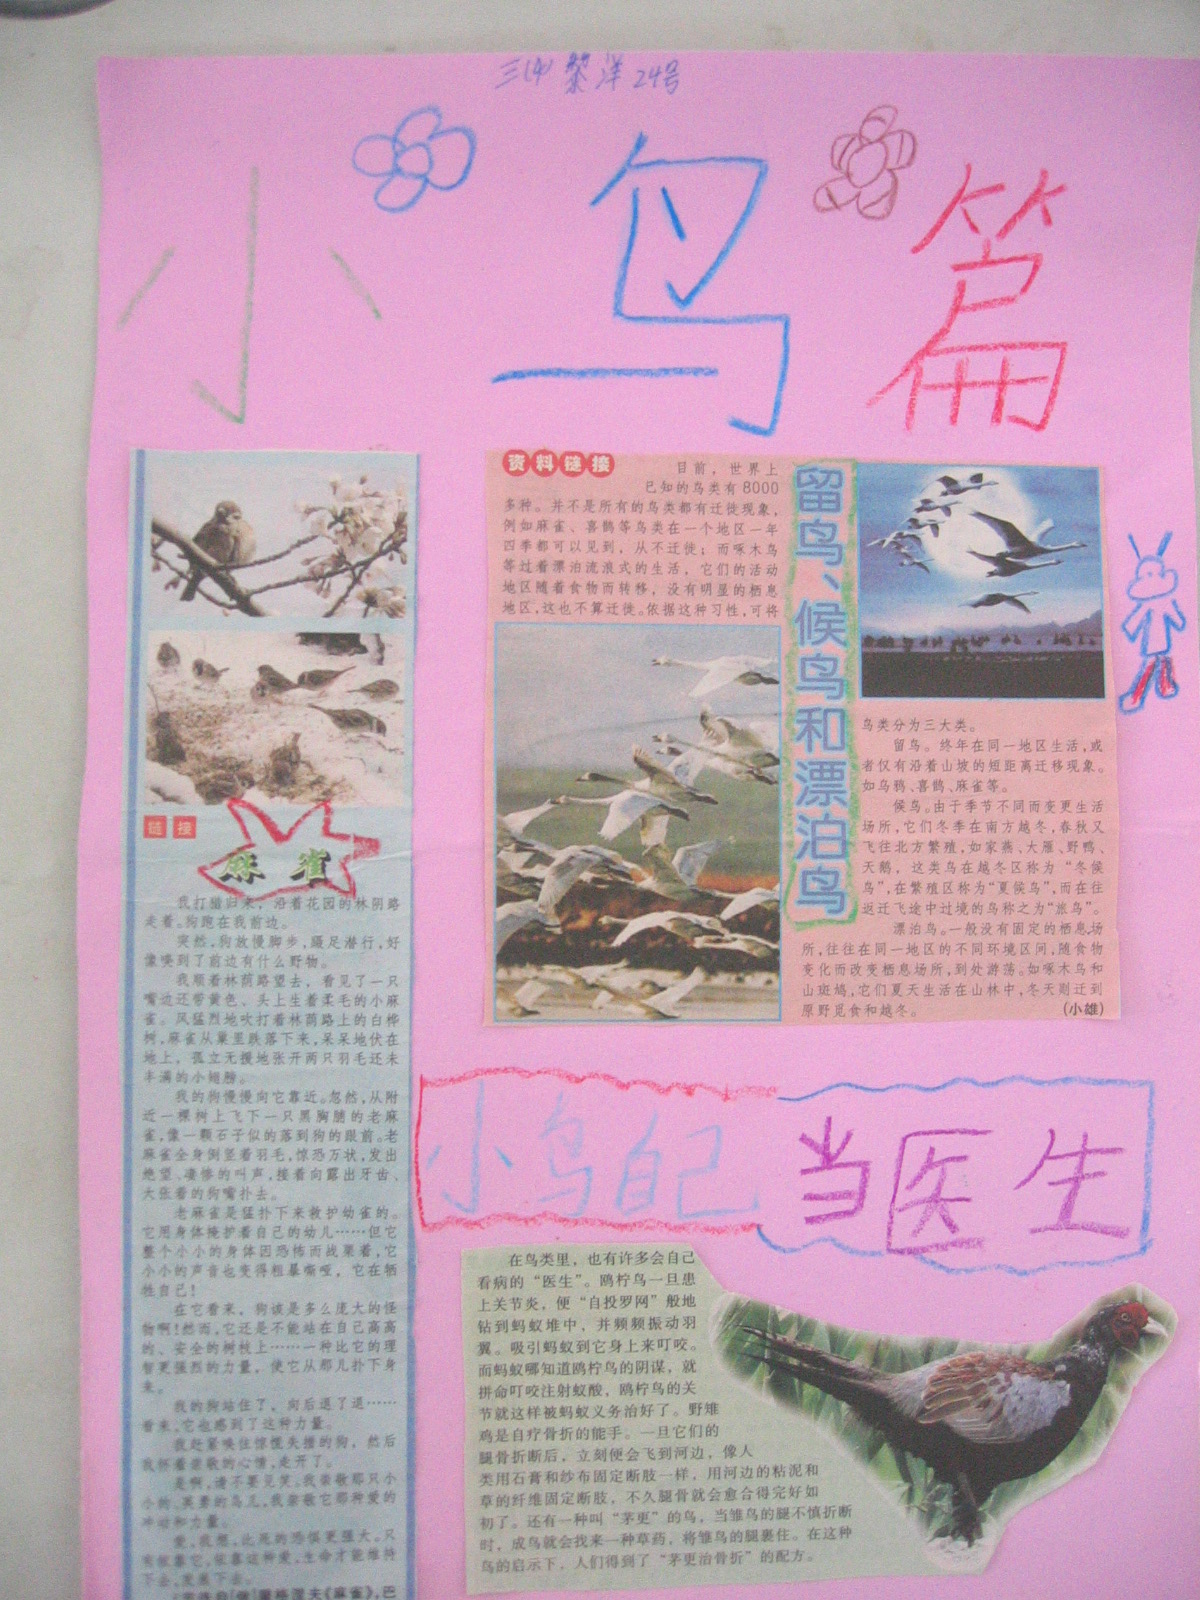 三(4) 黎洋 24号
小鸟篇
链接
麻雀
我打猎归来，沿着花园的林阴路
走着。狗跑在我前边。
突然，狗放慢脚步，蹑足潜行，好
像嗅到了前边有什么野物。
我顺着林荫路望去，看见了一只
嘴边还带黄色、头上生着柔毛的小麻
雀。风猛烈地吹打着林荫路上的白桦
树，麻雀从巢里跌落下来，呆呆地伏在
地上，孤立无援地张开两只羽毛还未
丰满的小翅膀。
我的狗慢慢向它靠近。忽然，从附
近一棵树上飞下一只黑胸脯的老麻
雀，像一颗石子似的落到狗的跟前。老
麻雀全身倒竖着羽毛，惊恐万状，发出
绝望、凄惨的叫声，接着向露出牙齿、
大张着的狗嘴扑去。
老麻雀是猛扑下来救护幼雀的。
它用身体掩护着自己的幼儿……但它
整个小小的身体因恐怖而战栗着，它
小小的声音也变得粗暴嘶哑，它在牺
牲自己！
在它看来，狗该是多么庞大的怪
物啊！然而，它还是不能站在自己高高
的、安全的树枝上……一种比它的理
智更强烈的力量，使它从那儿扑下身
来。
我的狗站住了，向后退了退……
看来，它也感到了这种力量。
我赶紧唤住惊慌失措的狗，然后
我怀着崇敬的心情，走开了。
是啊，请不要见笑。我崇敬那只小
小的、英勇的鸟儿，我崇敬它那种爱的
冲动和力量。
爱，我想，比死的恐惧更强大。只
有依靠它，依靠这种爱，生命才能维持
下去，发展下去。
《麻雀》，巴
资料链接
目前，世界上
已知的鸟类有8000
多种。并不是所有的鸟类都有迁徙现象，
例如麻雀、喜鹊等鸟类在一个地区一年
四季都可以见到，从不迁徙；而啄木鸟
等过着漂泊流浪式的生活，它们的活动
地区随着食物而转移，没有明显的栖息
地区，这也不算迁徙。依据这种习性，可将
留鸟、候鸟和漂泊鸟
鸟类分为三大类。
留鸟。终年在同一地区生活，或
者仅有沿着山坡的短距离迁移现象。
如乌鸦、喜鹊、麻雀等。
候鸟。由于季节不同而变更生活
场所，它们冬季在南方越冬，春秋又
飞往北方繁殖，如家燕、大雁、野鸭、
天鹅，这类鸟在越冬区称为“冬候
鸟”，在繁殖区称为“夏候鸟”，而在往
返迁飞途中过境的鸟称之为“旅鸟”。
漂泊鸟。一般没有固定的栖息场
所，往往在同一地区的不同环境区间，随食物
变化而改变栖息场所，到处游荡。如啄木鸟和
山斑鸠，它们夏天生活在山林中，冬天则迁到
原野觅食和越冬。
(小雄)
小鸟自己当医生
在鸟类里，也有许多会自己
看病的“医生”。鸥柠鸟一旦患
上关节炎，便“自投罗网”般地
钻到蚂蚁堆中，并频频振动羽
翼。吸引蚂蚁到它身上来叮咬。
而蚂蚁哪知道鸥柠鸟的阴谋，就
拼命叮咬注射蚁酸，鸥柠鸟的关
节就这样被蚂蚁义务治好了。野雉
鸡是自疗骨折的能手。一旦它们的
腿骨折断后，立刻便会飞到河边，像人
类用石膏和纱布固定断肢一样，用河边的粘泥和
草的纤维固定断肢，不久腿骨就会愈合得完好如
初了。还有一种叫“茅更”的鸟，当雏鸟的腿不慎折断
时，成鸟就会找来一种草药，将雏鸟的腿裹住。在这种
鸟的启示下，人们得到了“茅更治骨折”的配方。